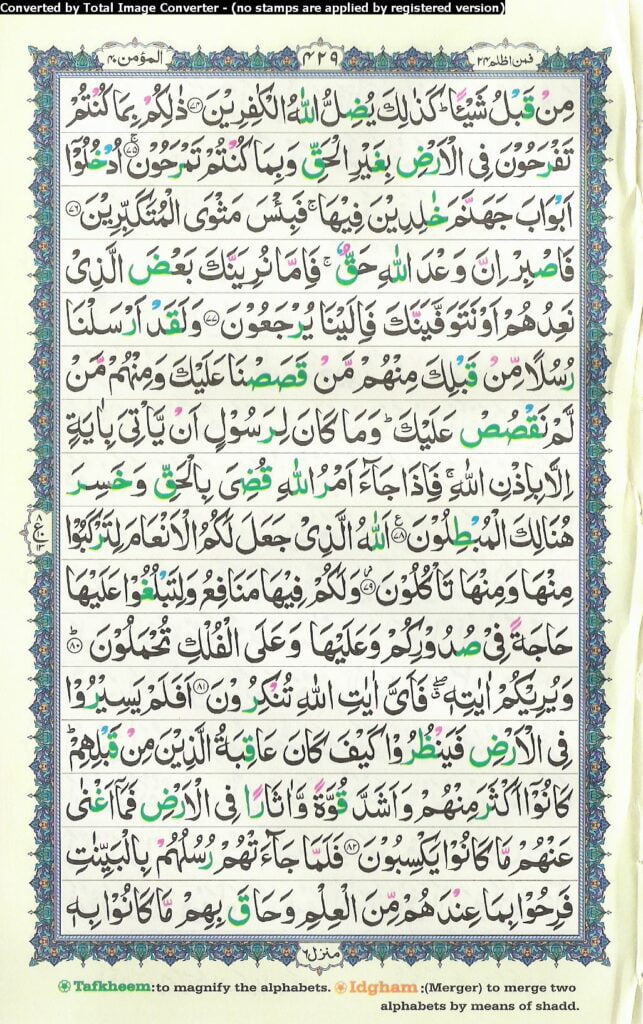 Converted by Total Image Converter - (no stamps are applied by registered version)
فمن اظلم ٢٤
٤٢٩
المؤمن ٤٠
مِنْ قَبْلُ شَيْئًا ؕ كَذٰلِكَ يُضِلُّ اللّٰهُ الْكٰفِرِيْنَ ﴿۷۴﴾ ذٰلِكُمْ بِمَا كُنْتُمْ
تَفْرَحُوْنَ فِى الْاَرْضِ بِغَيْرِ الْحَقِّ وَبِمَا كُنْتُمْ تَمْرَحُوْنَ ۚ﴿۷۵﴾ اُدْخُلُوْۤا
اَبْوَابَ جَهَنَّمَ خٰلِدِيْنَ فِيْهَا ۚ فَبِئْسَ مَثْوَى الْمُتَكَبِّرِيْنَ ﴿۷۶﴾
فَاصْبِرْ اِنَّ وَعْدَ اللّٰهِ حَقٌّ ۚ فَاِمَّا نُرِيَنَّكَ بَعْضَ الَّذِىْ
نَعِدُهُمْ اَوْ نَتَوَفَّيَنَّكَ فَاِلَيْنَا يُرْجَعُوْنَ ﴿۷۷﴾ وَلَقَدْ اَرْسَلْنَا
رُسُلًا مِّنْ قَبْلِكَ مِنْهُمْ مَّنْ قَصَصْنَا عَلَيْكَ وَمِنْهُمْ مَّنْ
لَّمْ نَقْصُصْ عَلَيْكَ ؕ وَمَا كَانَ لِرَسُوْلٍ اَنْ يَّاْتِىَ بِاٰيَةٍ
اِلَّا بِاِذْنِ اللّٰهِ ۚ فَاِذَا جَآءَ اَمْرُ اللّٰهِ قُضِىَ بِالْحَقِّ وَخَسِرَ
هُنَالِكَ الْمُبْطِلُوْنَ ﴿۷۸﴾ اَللّٰهُ الَّذِىْ جَعَلَ لَكُمُ الْاَنْعَامَ لِتَرْكَبُوْا
٨
ع
١٠
١٣
مِنْهَا وَمِنْهَا تَاْكُلُوْنَ ﴿۷۹﴾ وَلَكُمْ فِيْهَا مَنَافِعُ وَلِتَبْلُغُوْا عَلَيْهَا
حَاجَةً فِىْ صُدُوْرِكُمْ وَعَلَيْهَا وَعَلَى الْفُلْكِ تُحْمَلُوْنَ ؕ﴿۸۰﴾
وَيُرِيْكُمْ اٰيٰتِهٖ ۖ فَاَىَّ اٰيٰتِ اللّٰهِ تُنْكِرُوْنَ ﴿۸۱﴾ اَفَلَمْ يَسِيْرُوْا
فِى الْاَرْضِ فَيَنْظُرُوْا كَيْفَ كَانَ عَاقِبَةُ الَّذِيْنَ مِنْ قَبْلِهِمْ ؕ
كَانُوْۤا اَكْثَرَ مِنْهُمْ وَاَشَدَّ قُوَّةً وَّاٰثَارًا فِى الْاَرْضِ فَمَاۤ اَغْنٰى
عَنْهُمْ مَّا كَانُوْا يَكْسِبُوْنَ ﴿۸۲﴾ فَلَمَّا جَآءَتْهُمْ رُسُلُهُمْ بِالْبَيِّنٰتِ
فَرِحُوْا بِمَا عِنْدَهُمْ مِّنَ الْعِلْمِ وَحَاقَ بِهِمْ مَّا كَانُوْا بِهٖ
منزل ٦
Tafkheem:to magnify the alphabets. Idgham :(Merger) to merge two
alphabets by means of shadd.